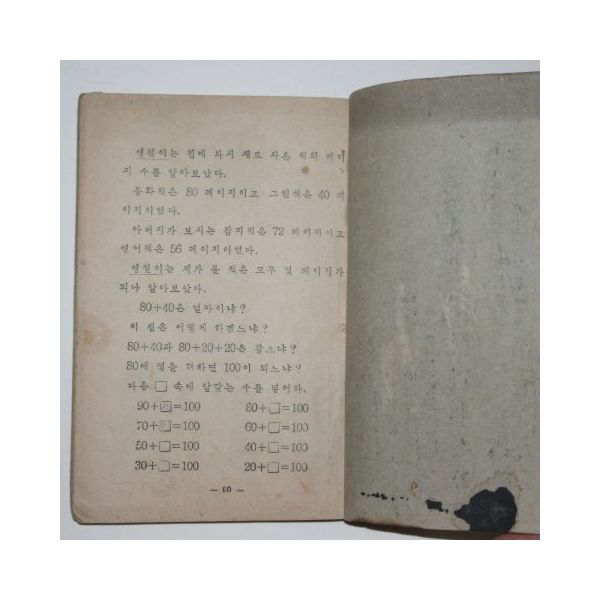 영철이는 집에 와서 새로 사온 책의 페이
지 수를 알아보았다.
동화책은 80 페이지이고 그림책은 40 페
이지이었다.
아버지가 보시는 잡지책은 72 페이지이고
영어책은 56 페이지이었다.
영철이는 제가 볼 책은 모두 몇 페이지가
되나 알아보았다.
80+40은 얼마이냐?
이 셈은 어떻게 하겠느냐?
80+40과 80+20+20은 같으냐?
80에 몇을 더하면 100이 되느냐?
다음 □ 속에 알맞는 수를 넣어라.
90+□=100 80+□=100
70+□=100 60+□=100
50+□=100 40+□=100
30+□=100 20+□=100
— 60 —